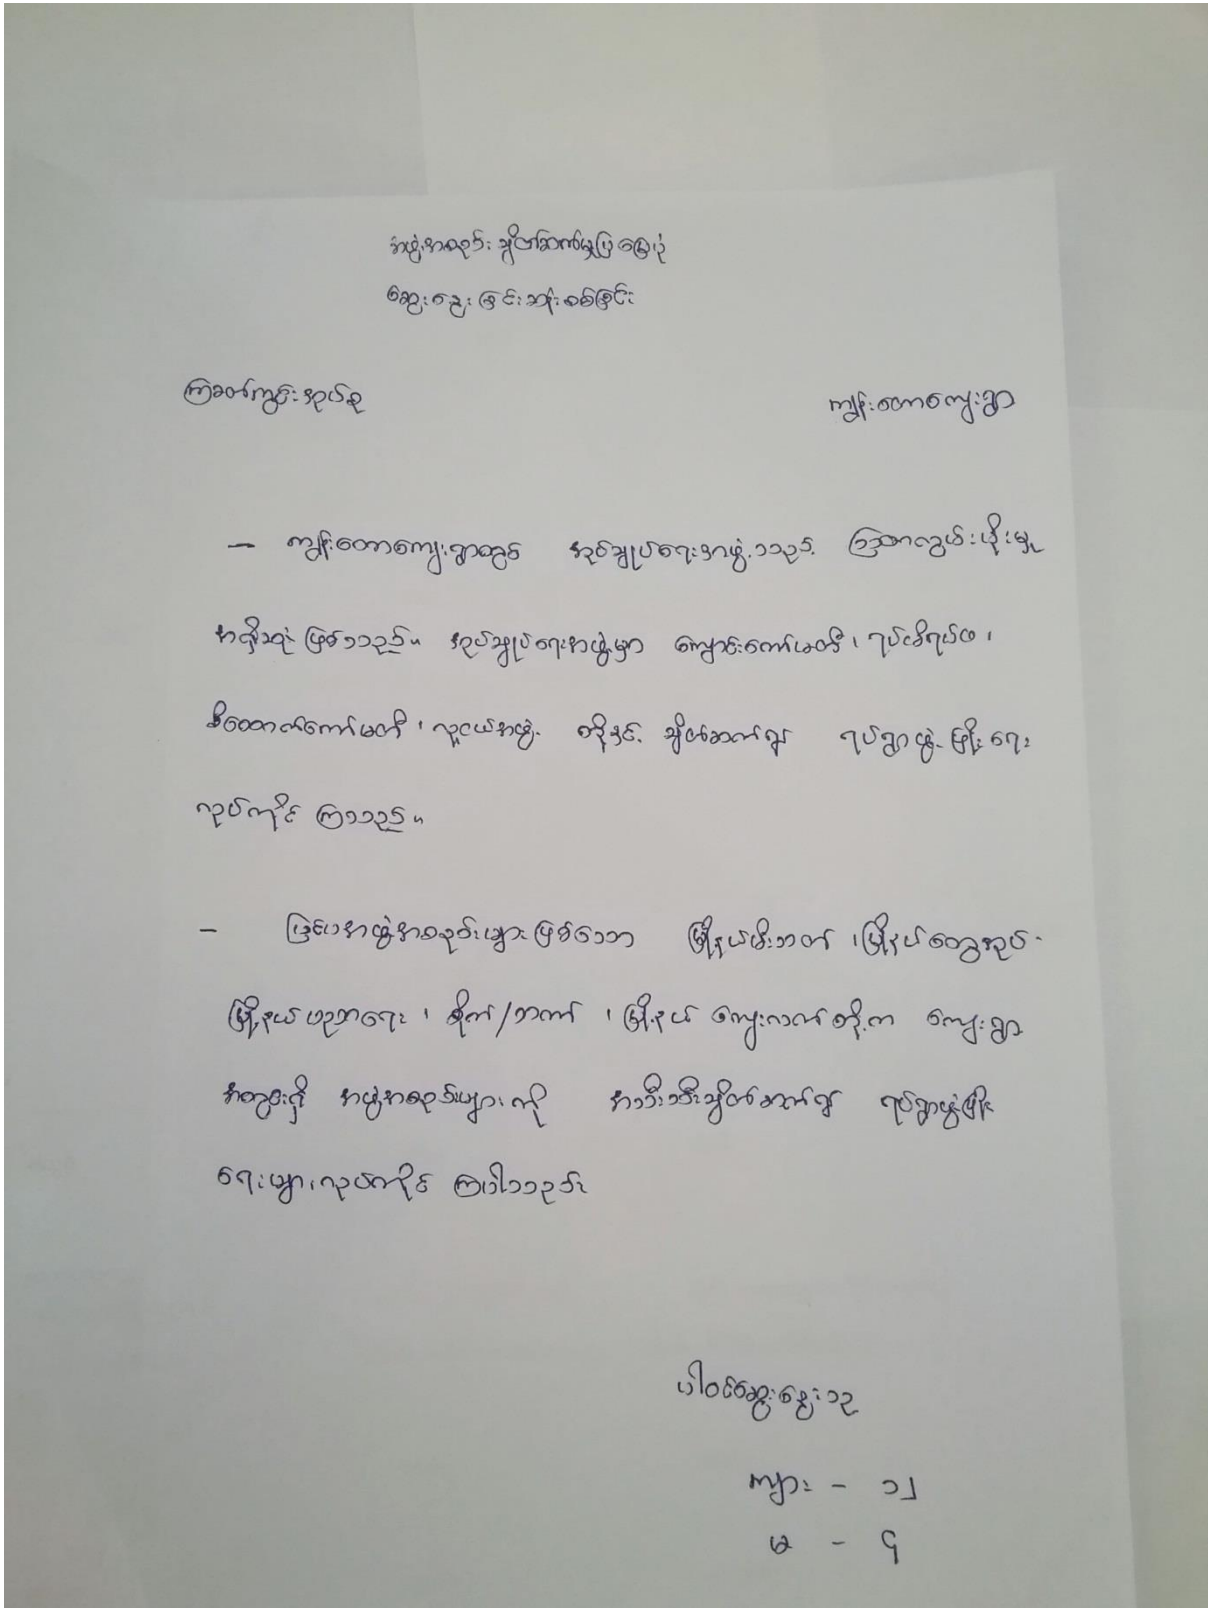 အဖွဲ့အစည်း ချိတ်ဆက်မှုပြမြေပုံ
ဆွေးနွေးခြင်းဆန်းစစ်ခြင်း
ကြခတ်ကွင်းအုပ်စု
ကျွန်းတောကျေးရွာ
– ကျွန်းတောကျေးရွာတွင် အုပ်ချုပ်ရေးအဖွဲ့သည် သြဇာလွှမ်းမိုးမှု
အရှိဆုံး ဖြစ်သည်။ အုပ်ချုပ်ရေးအဖွဲ့မှာ ကျောင်းကော်မတီ၊ ရပ်မိရပ်ဖ၊
စီထောက်ကော်မတီ၊ လူငယ်အဖွဲ့ တို့နှင့် ချိတ်ဆက်၍ ရပ်ရွာဖွံ့ဖြိုးရေး
လုပ်ကိုင် ကြသည်။
– ပြင်ပအဖွဲ့အစည်းများဖြစ်သော မြို့နယ်မီးသတ်၊ မြို့နယ်ထွေအုပ်
မြို့နယ်ပညာရေး၊ စိုက်/သကာ၊ မြို့နယ် ကျေးလက်တို့က ကျေးရွာ
အတွင်းရှိ အဖွဲ့အစည်းများကို အသီးသီးချိတ်ဆက်၍ ရပ်ရွာဖွံ့ဖြိုး
ရေးများလုပ်ကိုင် ကြပါသည်။
ပါဝင်ဆွေးနွေးသူ
ကျား – ၁၂
မ – ၄